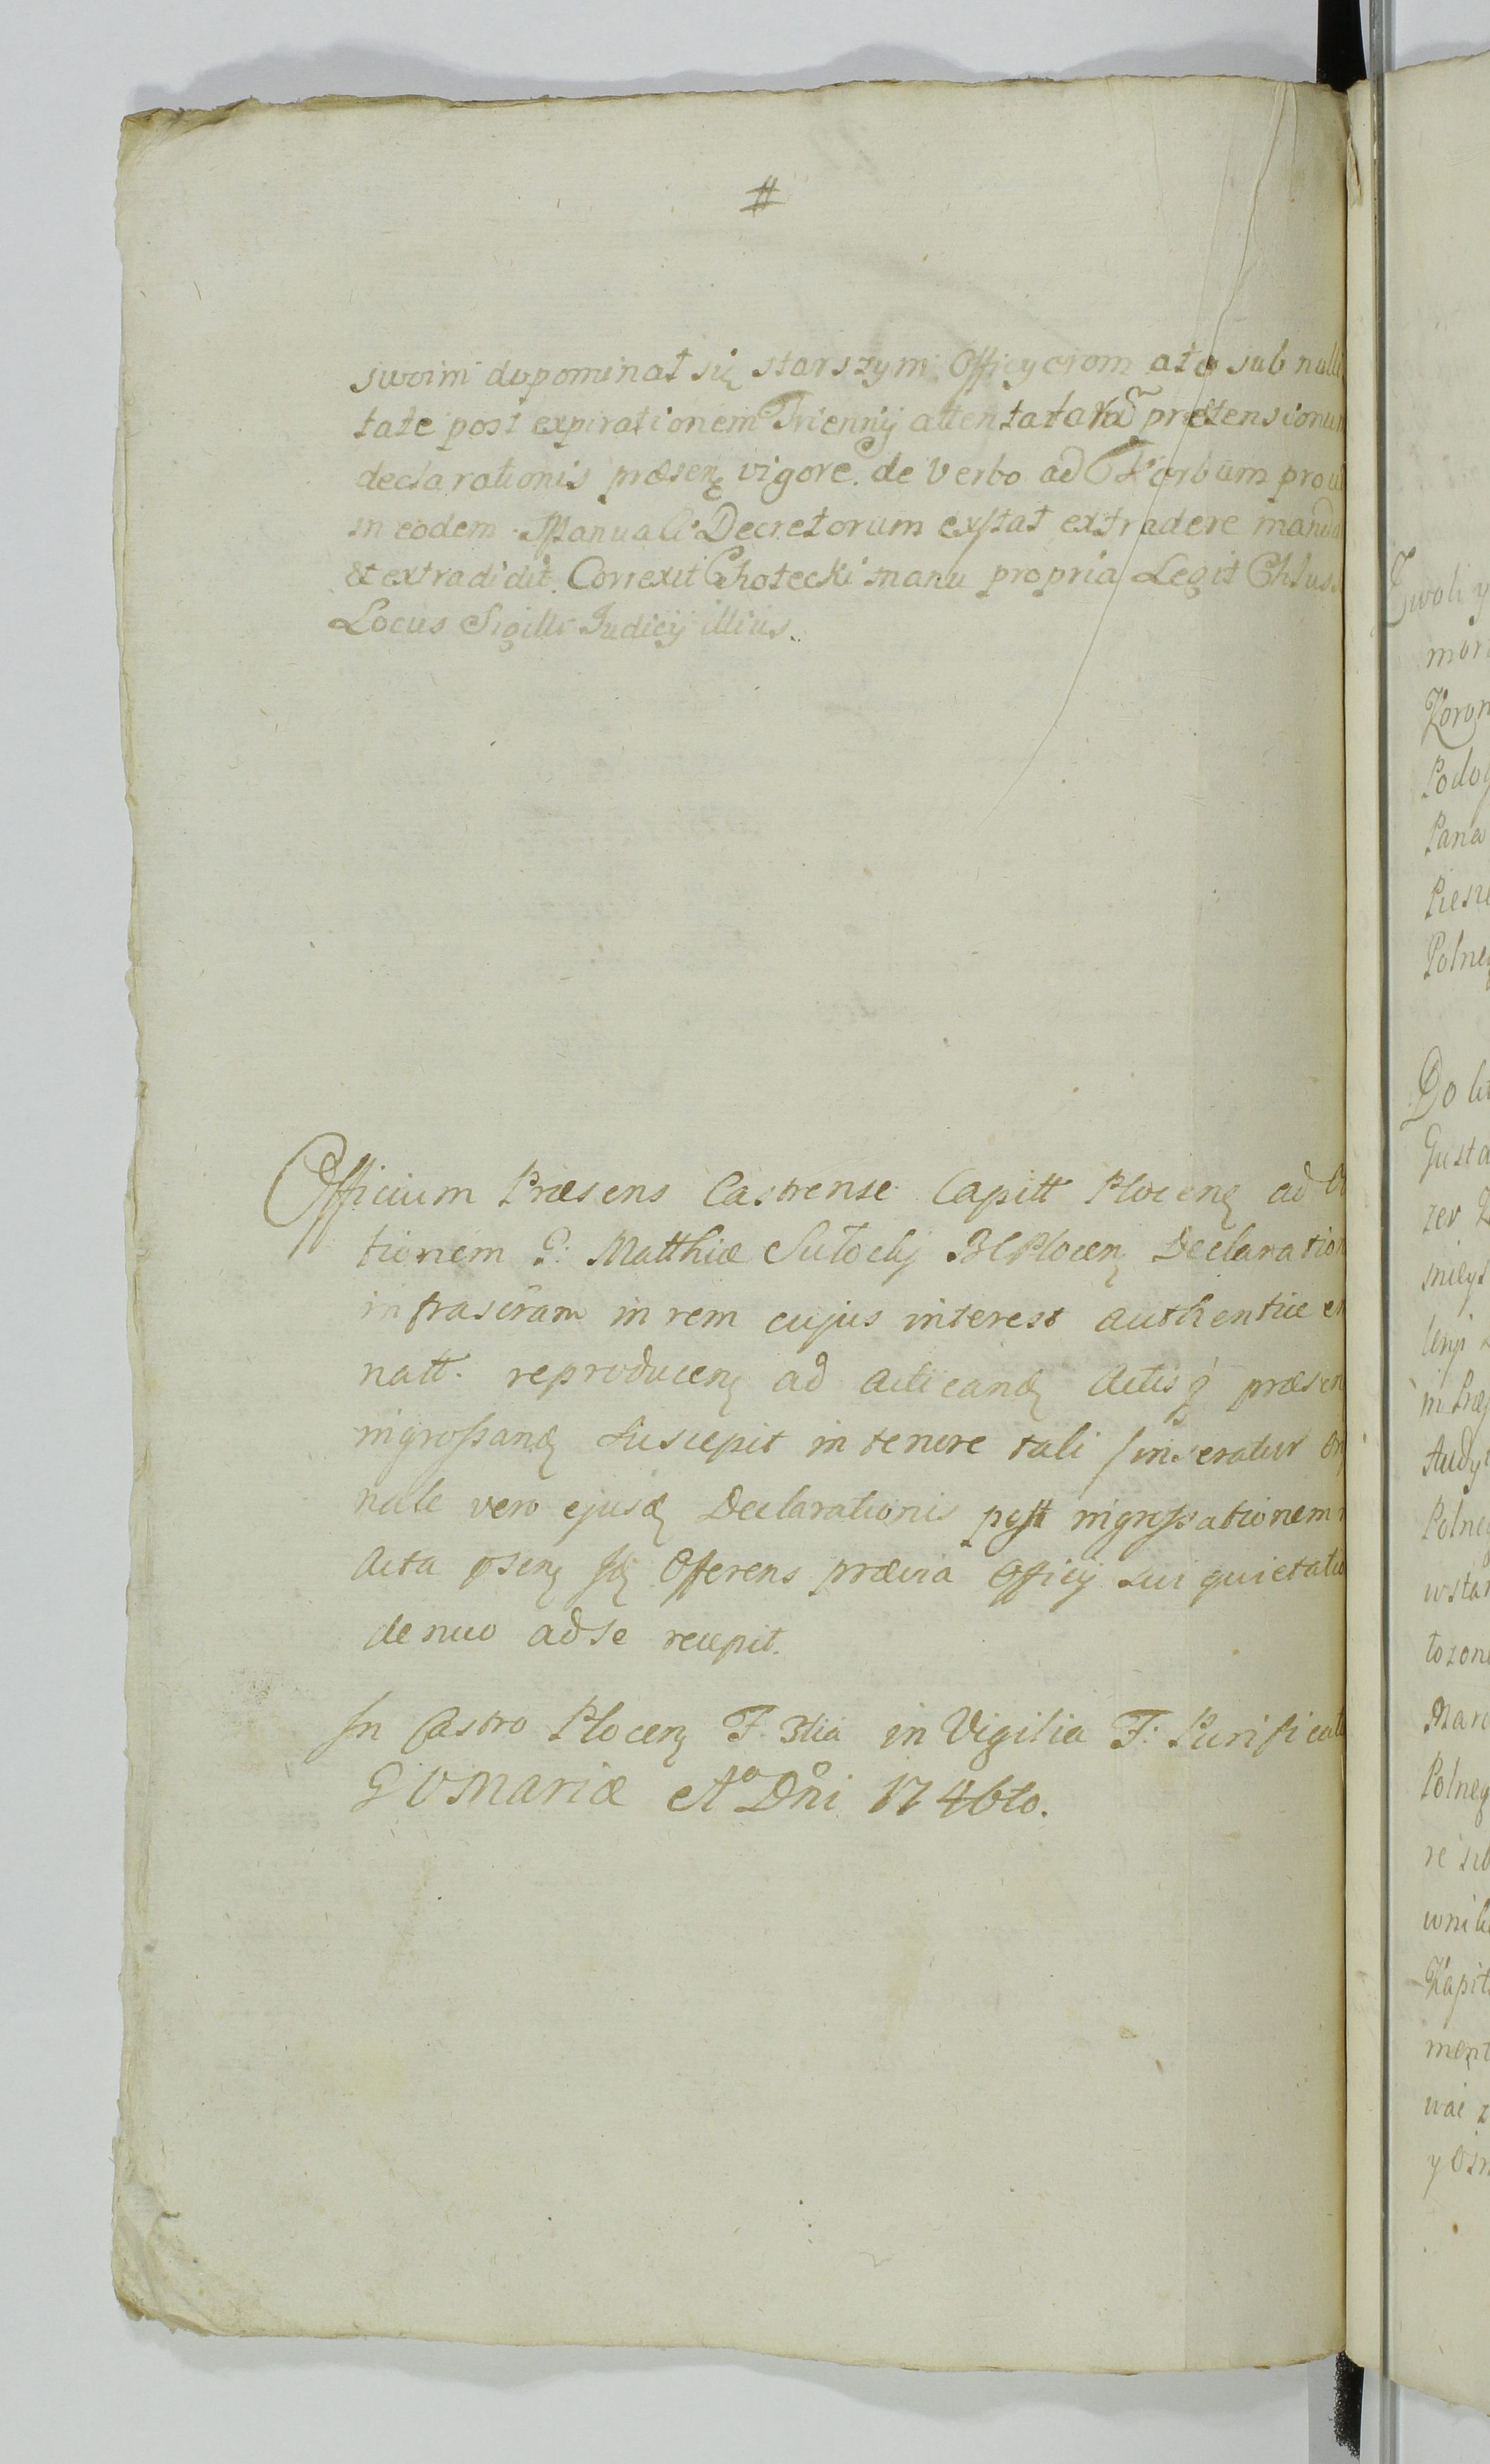 #
swoim dopominat się starszym Officyerom a to sub nulli
tate post expirationem Trienny attentatarũ prætensionum
declarationis præsenę vigore de Verbo ad Verbum prout
in eodem Manuali Decretorum exstat extradere mand
& extradidit. Correxit Chotecki manu propria Legit
Locus Sigilli Judicij illius.
Officium Præsens Castrense Capitt Plocenę ad
tionem G: Matthiæ Plocenę Declaration
infrascr̃am in rem cujus interest authentice
natt. reproducenę ad acticandę Actisq præsen
ingrossandę suscepit in tenore tali / inseratur
nale vero ejusdę Declarationis post ingrossationem
Acta psenę Offerens prævia Officij sui quietatio
denuo ad se recepit.
In Castro Plocenę F. 3tia in Vigilia F: Purificat
G V Mariæ Aº Dñi 1746to.
Zwoli y
mor
Koron
Podo
Pana
Polneg
Do
Gusta
zer
in
Audy
Polneg
wsta
Mar
Polneg
re
Kapit
ment
wac z
y